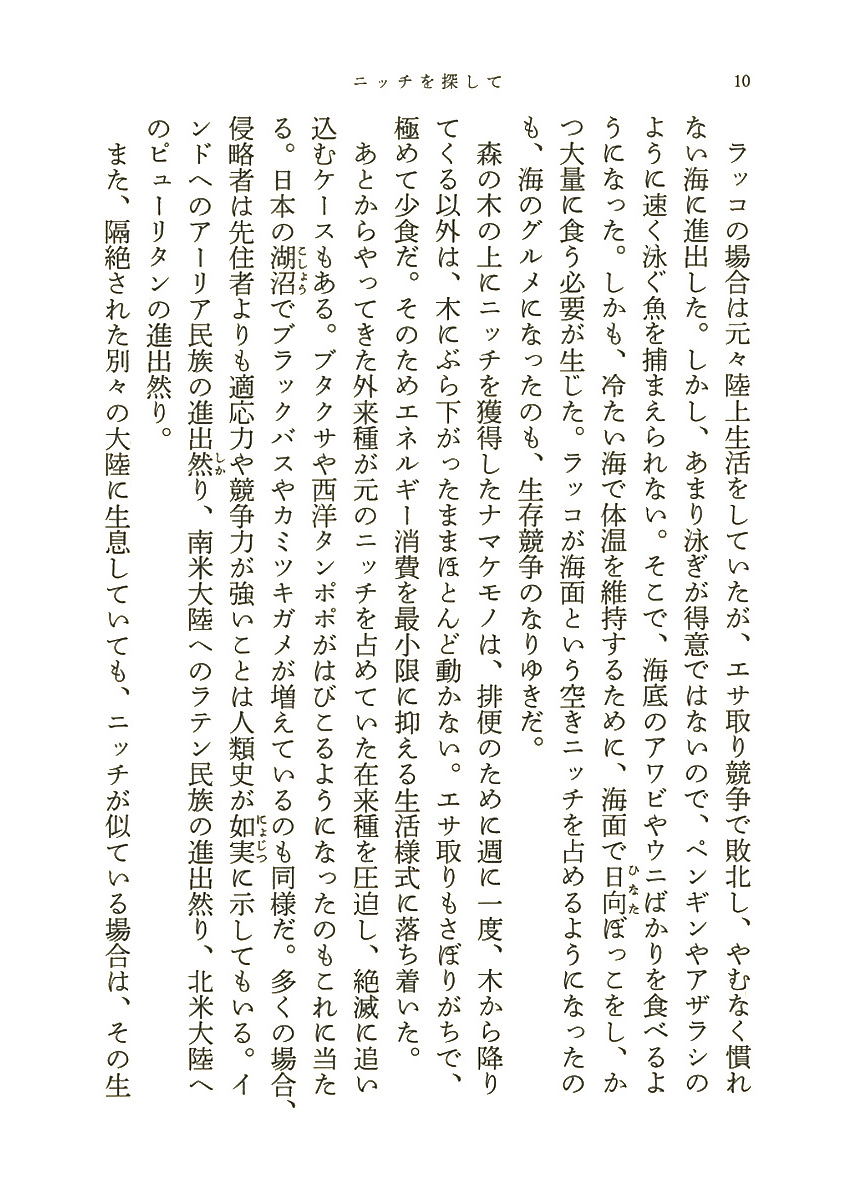 ニッチを探して
10
ラッコの場合は元々陸上生活をしていたが、エサ取り競争で敗北し、やむなく慣れ
ない海に進出した。しかし、あまり泳ぎが得意ではないので、ペンギンやアザラシの
ように速く泳ぐ魚を捕まえられない。そこで、海底のアワビやウニばかりを食べるよ
うになった。しかも、冷たい海で体温を維持するために、海面で日向ぼっこをし、か
つ大量に食う必要が生じた。ラッコが海面という空きニッチを占めるようになったの
も、海のグルメになったのも、生存競争のなりゆきだ。
森の木の上にニッチを獲得したナマケモノは、排便のために週に一度、木から降り
てくる以外は、木にぶら下がったままほとんど動かない。エサ取りもさぼりがちで、
極めて少食だ。そのためエネルギー消費を最小限に抑える生活様式に落ち着いた。
あとからやってきた外来種が元のニッチを占めていた在来種を圧迫し、絶滅に追い
込むケースもある。ブタクサや西洋タンポポがはびこるようになったのもこれに当た
る。日本の湖沼でブラックバスやカミツキガメが増えているのも同様だ。多くの場合、
侵略者は先住者よりも適応力や競争力が強いことは人類史が如実に示してもいる。イ
ンドへのアーリア民族の進出然り、南米大陸へのラテン民族の進出然り、北米大陸へ
のピューリタンの進出然り。
また、隔絶された別々の大陸に生息していても、ニッチが似ている場合は、その生
ひなた
こしょう
にょじつ
しか